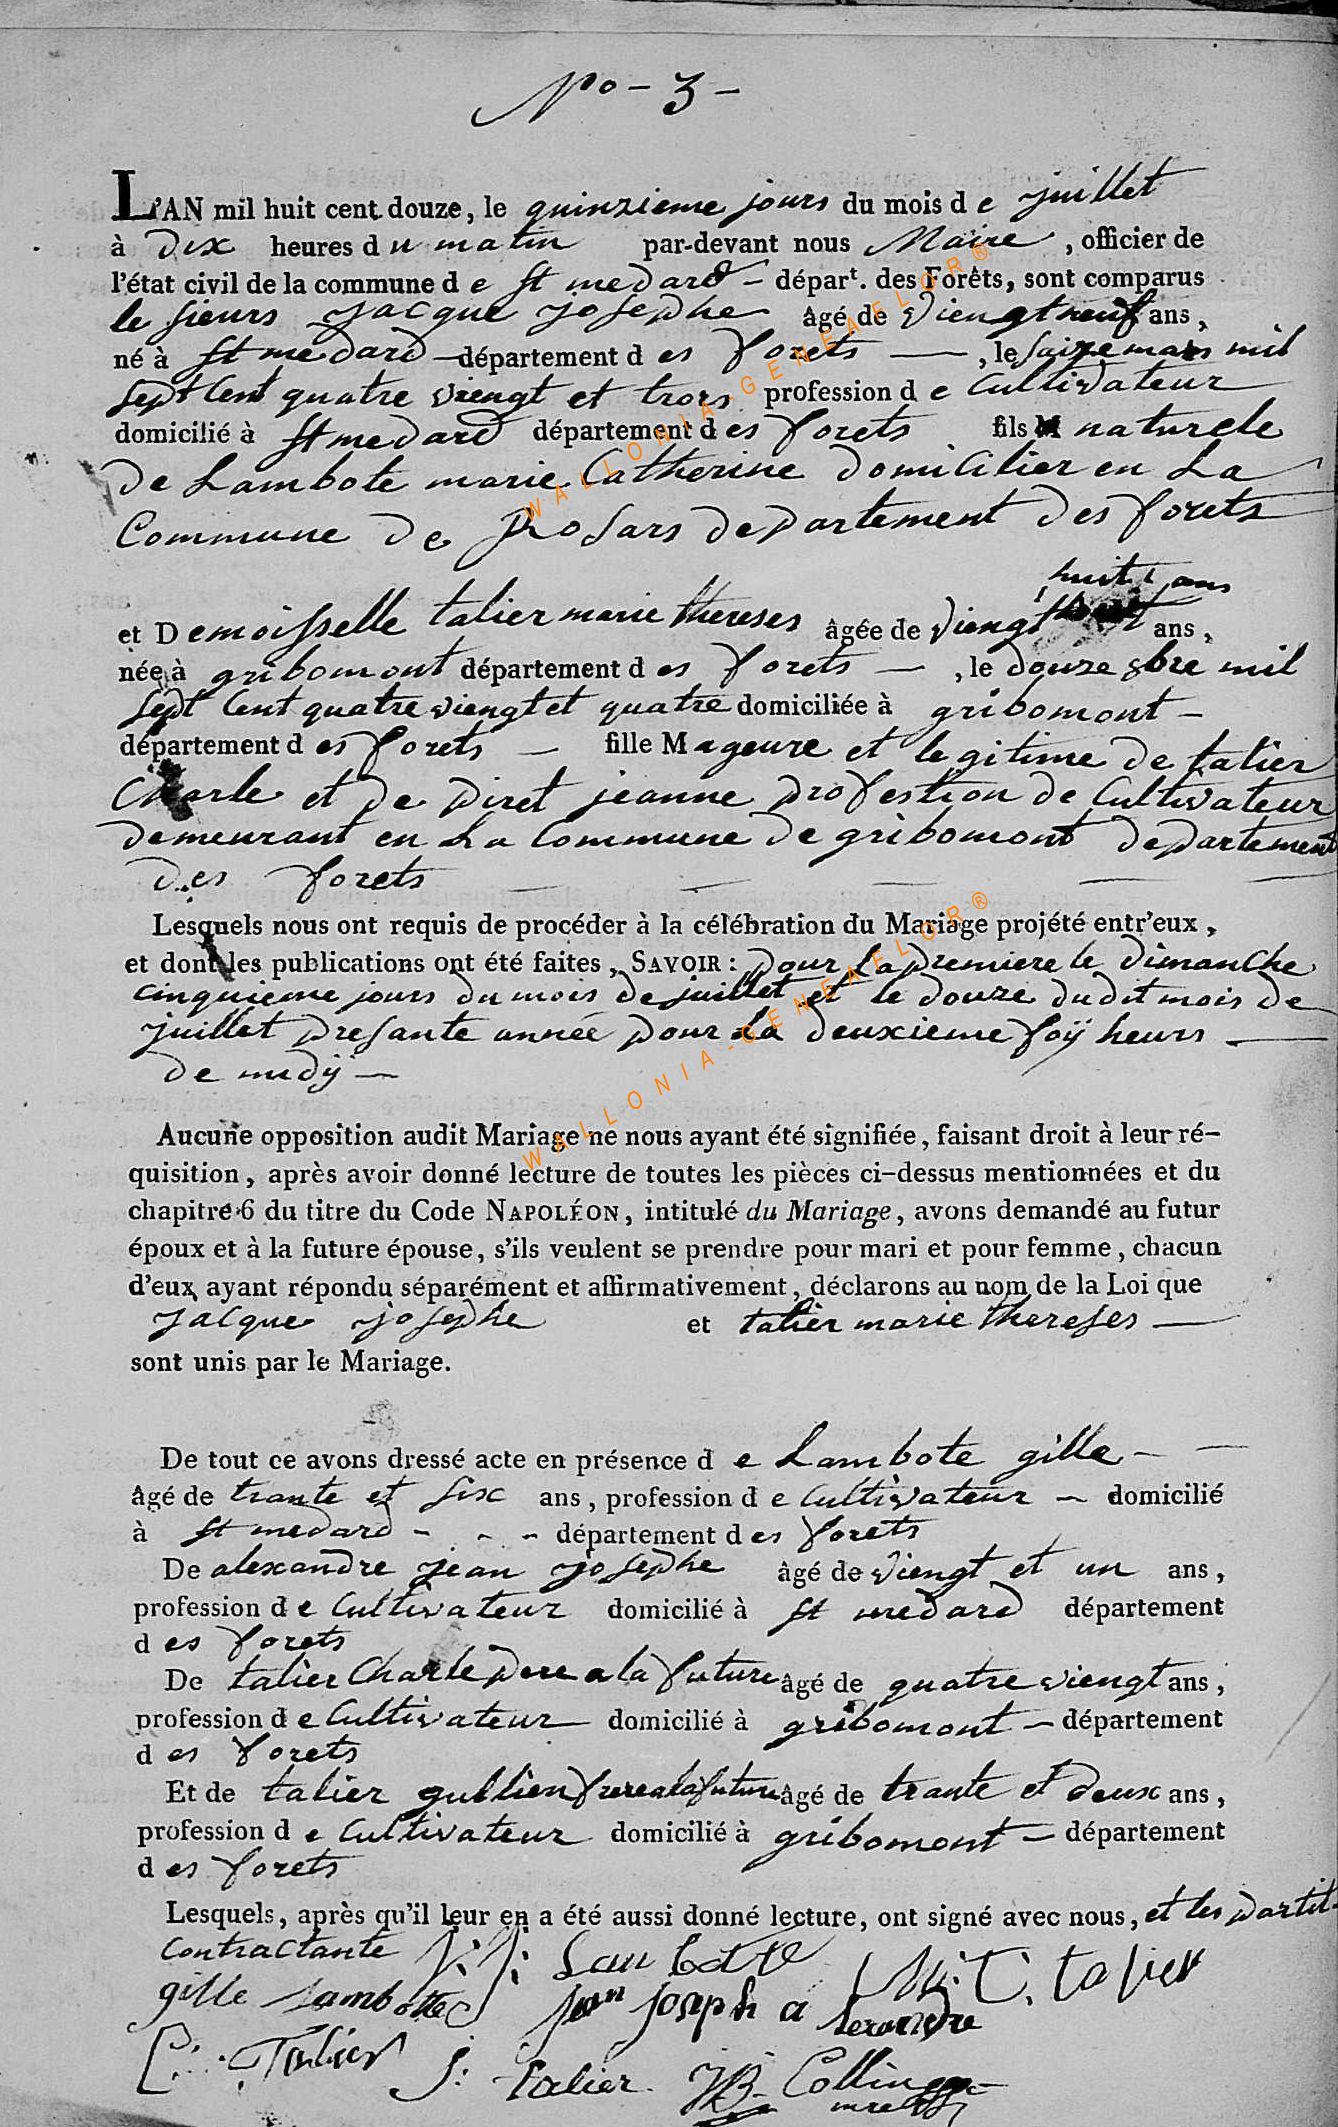 No - 3 -
L'AN mil huit cent douze, le quinzieme jours du mois de juillet
à dix heures du matin par-devant nous Maire, officier de
l'état civil de la commune de st medard - départ. des Forêts, sont comparus
le sieurs jacque josephe âgé de viengt neuf ans,
né à st medard département des forets —, le saize mars mil
sept cent quatre viengt et trois profession de cultivateur
domicilié à st medard département des forets fils naturele
de Lambote marie Catherine domicilier en La
Commune de Rosars departement des forets
huit ans
et Demoisselle talier marie thereses âgée de viengt ans,
née à gribomont département des forets —, le douze 8bre mil
sept Cent quatre viengt et quatre domiciliée à gribomont -
département des forets — fille Mageure et legitime de talier
Charle et de piret jeanne profestion de Cultivateur
demeurant en La Commune de gribomont departement
des forets
Lesquels nous ont requis de procéder à la célébration du Mariage projété entr'eux,
et dont les publications ont été faites, SAVOIR: pour la premiere le dimanche
cinquieme jours du mois de juillet et le douze dudit mois de
juillet presante année pour la deuxieme foÿ heurs —
de midÿ —
Aucune opposition audit Mariage ne nous ayant été signifiée, faisant droit à leur ré-
quisition, après avoir donné lecture de toutes les pièces ci-dessus mentionnées et du
chapitre 6 du titre du Code NAPOLÉON, intitulé du Mariage, avons demandé au futur
époux et à la future épouse, s'ils veulent se prendre pour mari et pour femme, chacun
d'eux ayant répondu séparément et affirmativement, déclarons au nom de la Loi que
jacque josephe et talier marie thereses —
sont unis par le Mariage.
De tout ce avons dressé acte en présence de Lambote gille -
âgé de trante et six ans, profession de cultivateur - domicilié
à st medard - - - département des forets
De alexandre jean josephe âgé de viengt et un ans,
profession de cultivateur domicilié à st medard département
des forets
De talier Charle pere a la future âgé de quatre viengt ans,
profession de cultivateur domicilié à gribomont - département
des forets
Et de talier gullien frere a la future âgé de trante et deux ans,
profession de cultivateur domicilié à gribomont - département
des forets
Lesquels, après qu'il leur en a été aussi donné lecture, ont signé avec nous, et les partit
contractante J: J: Lambotte M: T: talier
gille Lambotte jean joseph alexandre
C: Talier J: talier JB Collin
WALLONIA-GENEAFLOR®
WALLONIA-GENEAFLOR®